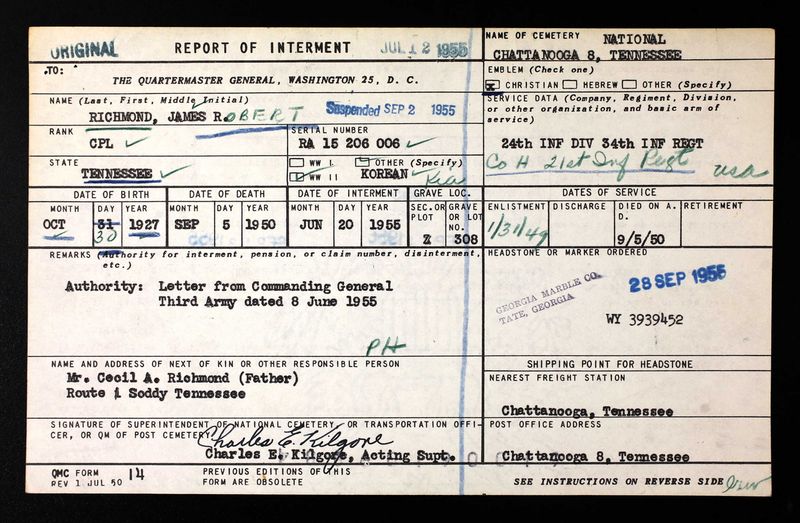 ORIGINAL REPORT OF INTERMENT JUL 12 1955
TO:
THE QUARTERMASTER GENERAL, WASHINGTON 25, D. C.
NAME OF CEMETERY NATIONAL
CHATTANOOGA 8, TENNESSEE
EMBLEM (Check one)
x CHRISTIAN HEBREW OTHER (Specify)
NAME (Last, First, Middle Initial)
RICHMOND, JAMES R. OBERT Suspended SEP 2 1955
SERVICE DATA (Company, Regiment, Division, or other organization, and basic arm of service)
24th INF DIV 34th INF REGT
Co H 21st Inf Regt USA
RANK
CPL
SERIAL NUMBER
RA 15 206 006
STATE
TENNESSEE
WW I OTHER (Specify)
WW II KOREAN
Kia
DATE OF BIRTH DATE OF DEATH DATE OF INTERMENT GRAVE LOC. DATES OF SERVICE
MONTH DAY YEAR MONTH DAY YEAR MONTH DAY YEAR SEC. OR PLOT GRAVE OR LOT NO. ENLISTMENT DISCHARGE DIED ON A. D. RETIREMENT
OCT 31 1927 SEP 5 1950 JUN 20 1955 Z 308 1/31/49 9/5/50
30
REMARKS (Authority for interment, pension, or claim number, disinterment, etc.)
Authority: Letter from Commanding General
Third Army dated 8 June 1955
PH
HEADSTONE OR MARKER ORDERED
GEORGIA MARBLE CO.
TATE, GEORGIA
28 SEP 1955
WY 3939452
NAME AND ADDRESS OF NEXT OF KIN OR OTHER RESPONSIBLE PERSON
Mr. Cecil A. Richmond (Father)
Route 1 Soddy Tennessee
SHIPPING POINT FOR HEADSTONE
NEAREST FREIGHT STATION
Chattanooga, Tennessee
SIGNATURE OF SUPERINTENDENT OF NATIONAL CEMETERY OR TRANSPORTATION OFFI-
CER, OR QM OF POST CEMETERY
Charles E. Kilgore
Charles E. Kilgore, Acting Supt.
POST OFFICE ADDRESS
Chattanooga 8, Tennessee
QMC FORM 14
REV 1 JUL 50
PREVIOUS EDITIONS OF THIS
FORM ARE OBSOLETE
SEE INSTRUCTIONS ON REVERSE SIDE